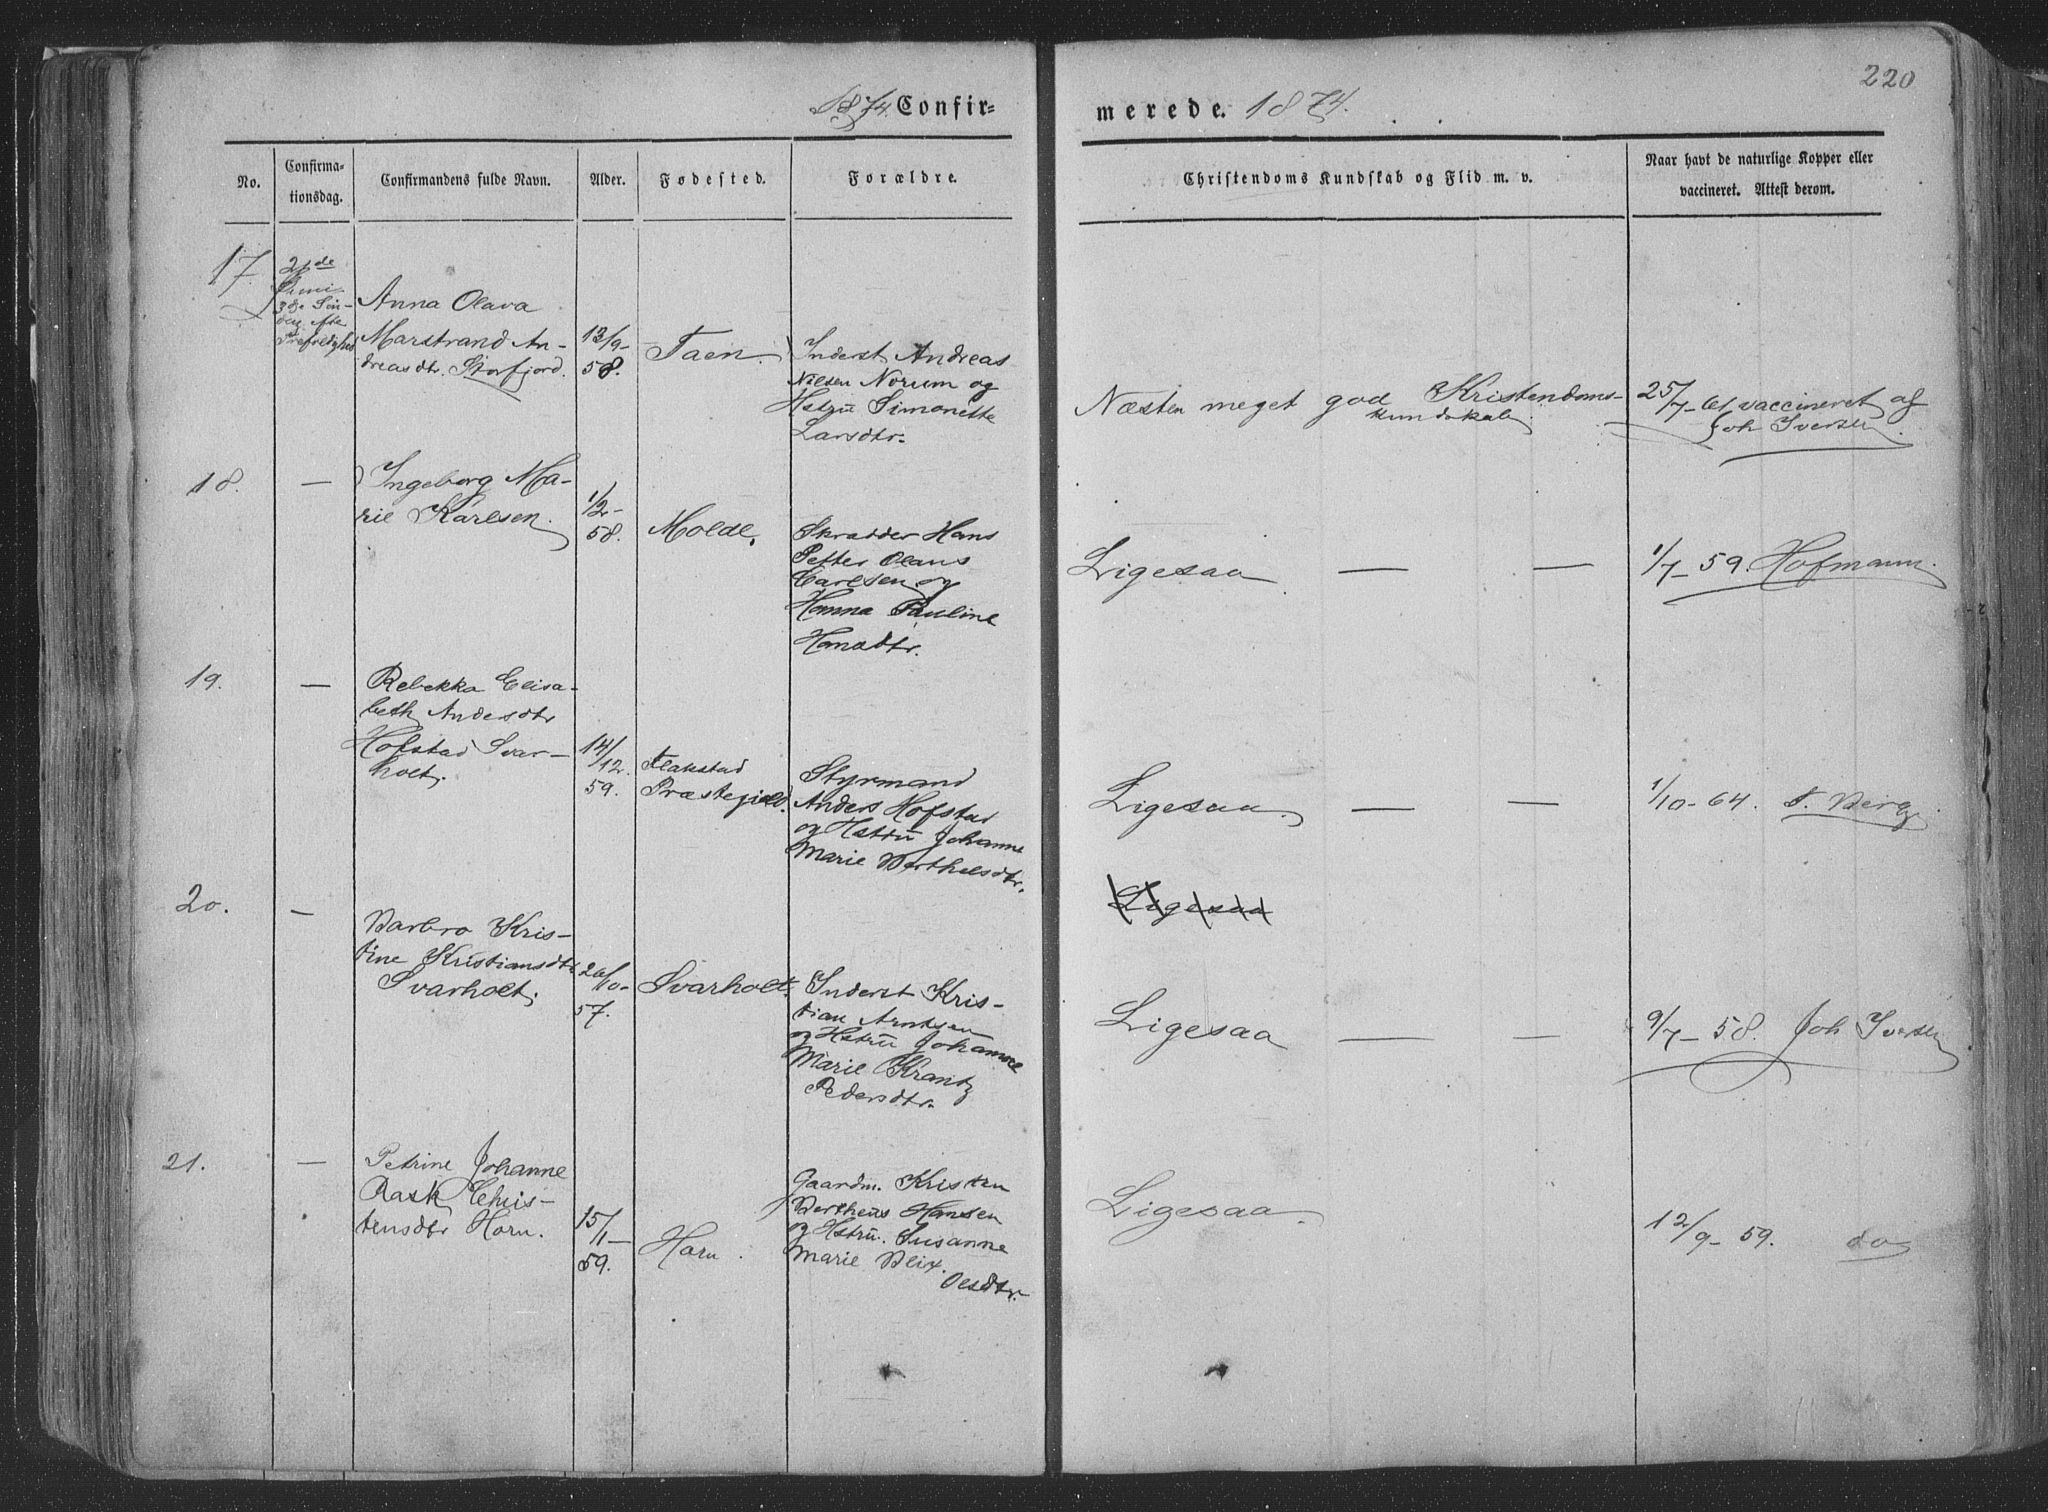 220
1874. Confir=
merede. 1874.
No.
Confirma-
tionsdag.
Confirmandens fulde Navn.
Alder.
Fødested.
Forældre.
Christendoms Kundskab og Flid m. v.
Naar havt de naturlige Kopper eller
vaccineret. Attest derom.
17.
21de
Juni
3de Søn-
dag efter
Trefoldighed
Anna Olava
Marstrand An-
dreasdtr. Storfjord.
13/9-
58.
Taen.
Inderst Andreas
Nilsen Norum og
Hstrū Simonette
Larsdtr.
Næsten meget god Kristendoms-
kundskab.
25/7-61 vaccineret af
Joh Iversen
18.
—
Ingeborg Ma-
rie Karlsen.
1/2-
58.
Molde.
Skrædder Hans
Petter Olaus
Carlsen og
Hanna Pauline
Hansdtr.
Ligesaa — —
1/7-59. Hofmann.
19.
—
Rebekka Elisa-
beth Andersdtr
Hofstad Svar-
holt.
14/12.
59.
Flakstad
Præstegjeld.
Styrmand
Anders Hofstad
og Hstrū Johanne
Marie Berthelsdtr.
Ligesaa. — —
1/10-64. Berg
20.
—
Barbro Kris-
tine Kristiansdtr
Svarholt.
26/10-
57.
Svarholt.
Ligesaa
Inderst Kris-
tian Arntsen
og Hstrū Johanne
Marie Krantz
Pedersdtr.
Ligesaa — —
9/7-58. Joh Iversen
21.
—
Petrine Johanne
Rask Chris-
tensdtr Horn.
15/1-
59.
Horn.
Gaardm. Kristen
Bertheus Hansen
og Hstrū. Susanne
Marie Blix.
Olsdtr.
Ligesaa.
12/9-59. do